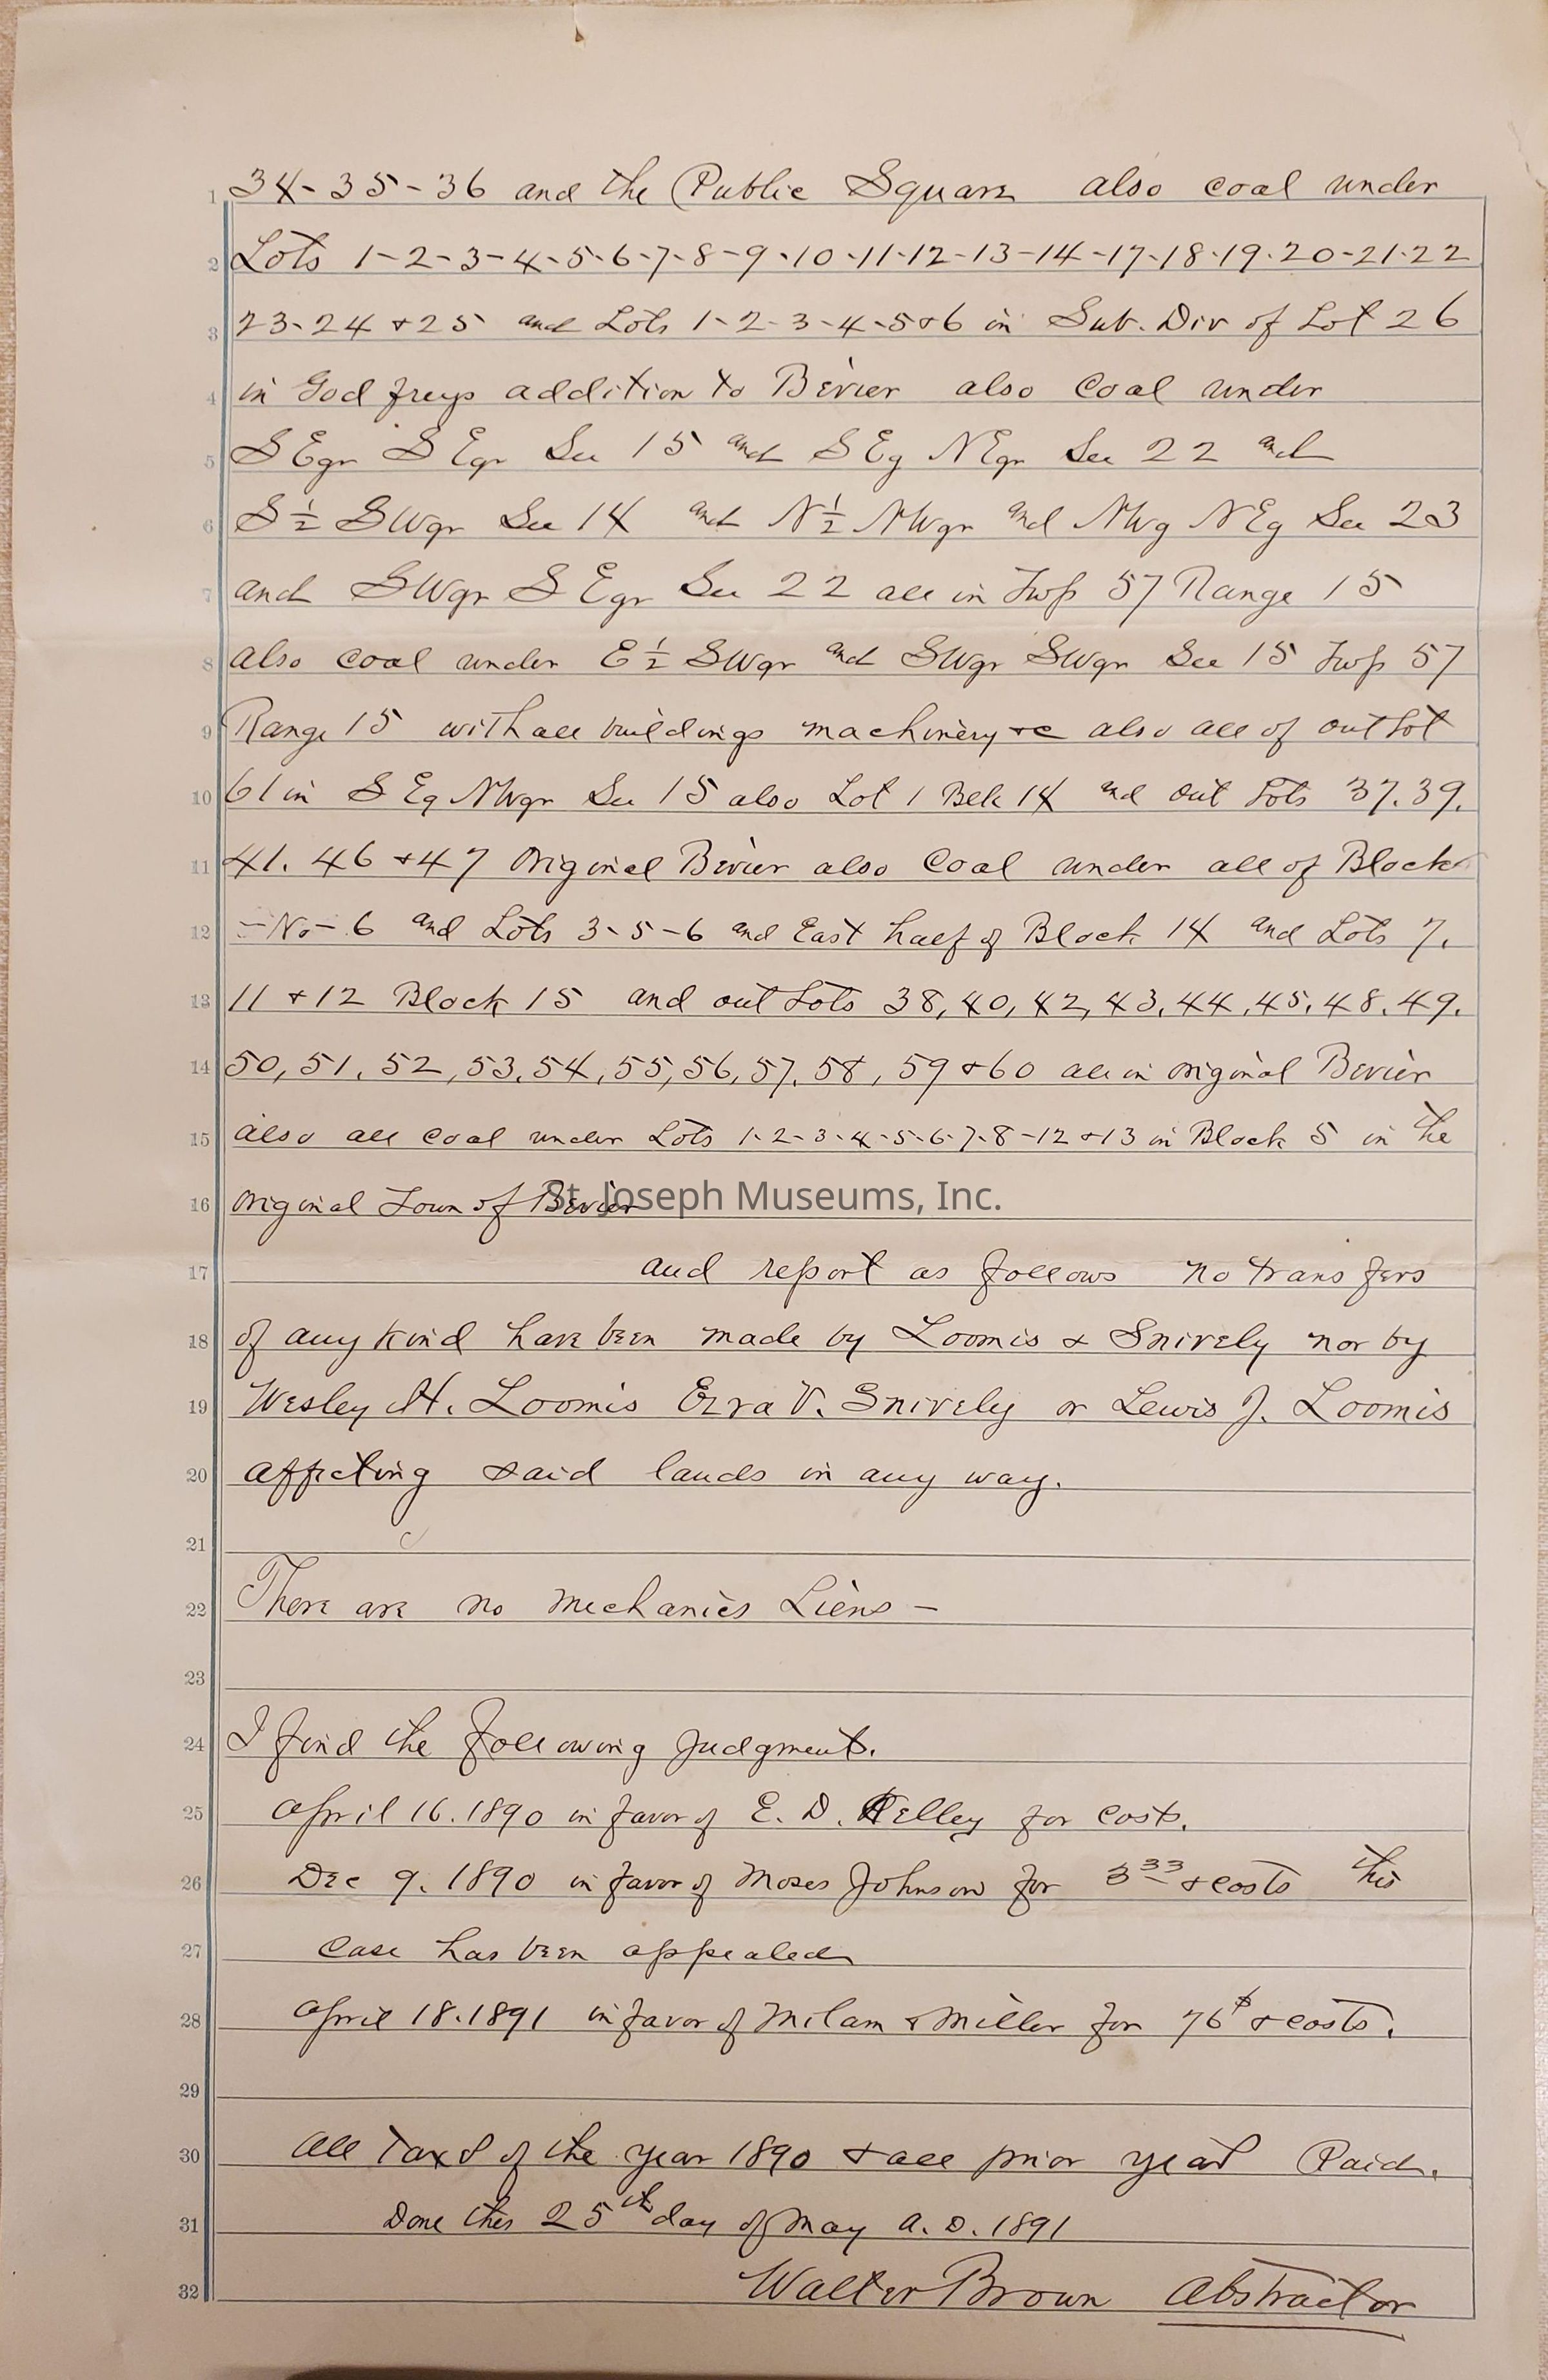 1 34-35-36 and the Public Square also coal under
2 Lots 1-2-3-4-5-6-7-8-9-10-11-12-13-14-17-18-19-20-21-22
3 23-24 + 25 and Lots 1-2-3-4-5+6 in Sub. Div of Lot 26
4 in Godfreys addition to Bevier also Coal under
5 SEqr SEqr Sec 15 and SEq NEqr Sec 22 and
6 S½ SWqr Sec 14 and N½ NWqr and NWq NEq Sec 23
7 and SWqr SEqr Sec 22 all in Twp 57 Range 15
8 also coal under E½ SWqr and SWqr SWqr Sec 15 Twp 57
9 Range 15 with all buildings machinery +c also all of out Lot
10 61 in SEq NWqr Sec 15 also Lot 1 Belk 14 and out Lots 37. 39.
11 41. 46 + 47 Original Bevier also Coal under all of Block
12 -No- 6 and Lots 3-5-6 and East half of Block 14 and Lots 7.
13 11 + 12 Block 15 and out Lots 38, 40, 42, 43. 44, 45. 48. 49.
14 50, 51. 52, 53. 54, 55, 56, 57. 58, 59 + 60 all in original Bevier
15 also all coal under Lots 1-2-3-4-5-6-7-8-12 + 13 in Block 5 in the
16 original Town of Bevier
St. Joseph Museums, Inc.
17 and report as follows no transfers
18 of any kind have been made by Loomis + Snively nor by
19 Wesley H. Loomis Ezra V. Snively or Lewis J. Loomis
20 affecting said lands in any way.
21
22 There are no mechanics Liens -
23
24 I find the following Judgment.
25 April 16. 1890 in favor of E. D. Kelley for costs.
26 Dec 9. 1890 in favor of Moses Johnson for 3 33 + costs this
27 case has been appealed
28 April 18. 1891 in favor of Milam + Miller for 76 $ + costs.
29
30 All Taxes of the year 1890 + all prior years Paid.
31 Done this 25th day of May A. D. 1891
32 Walter Brown Abstractor